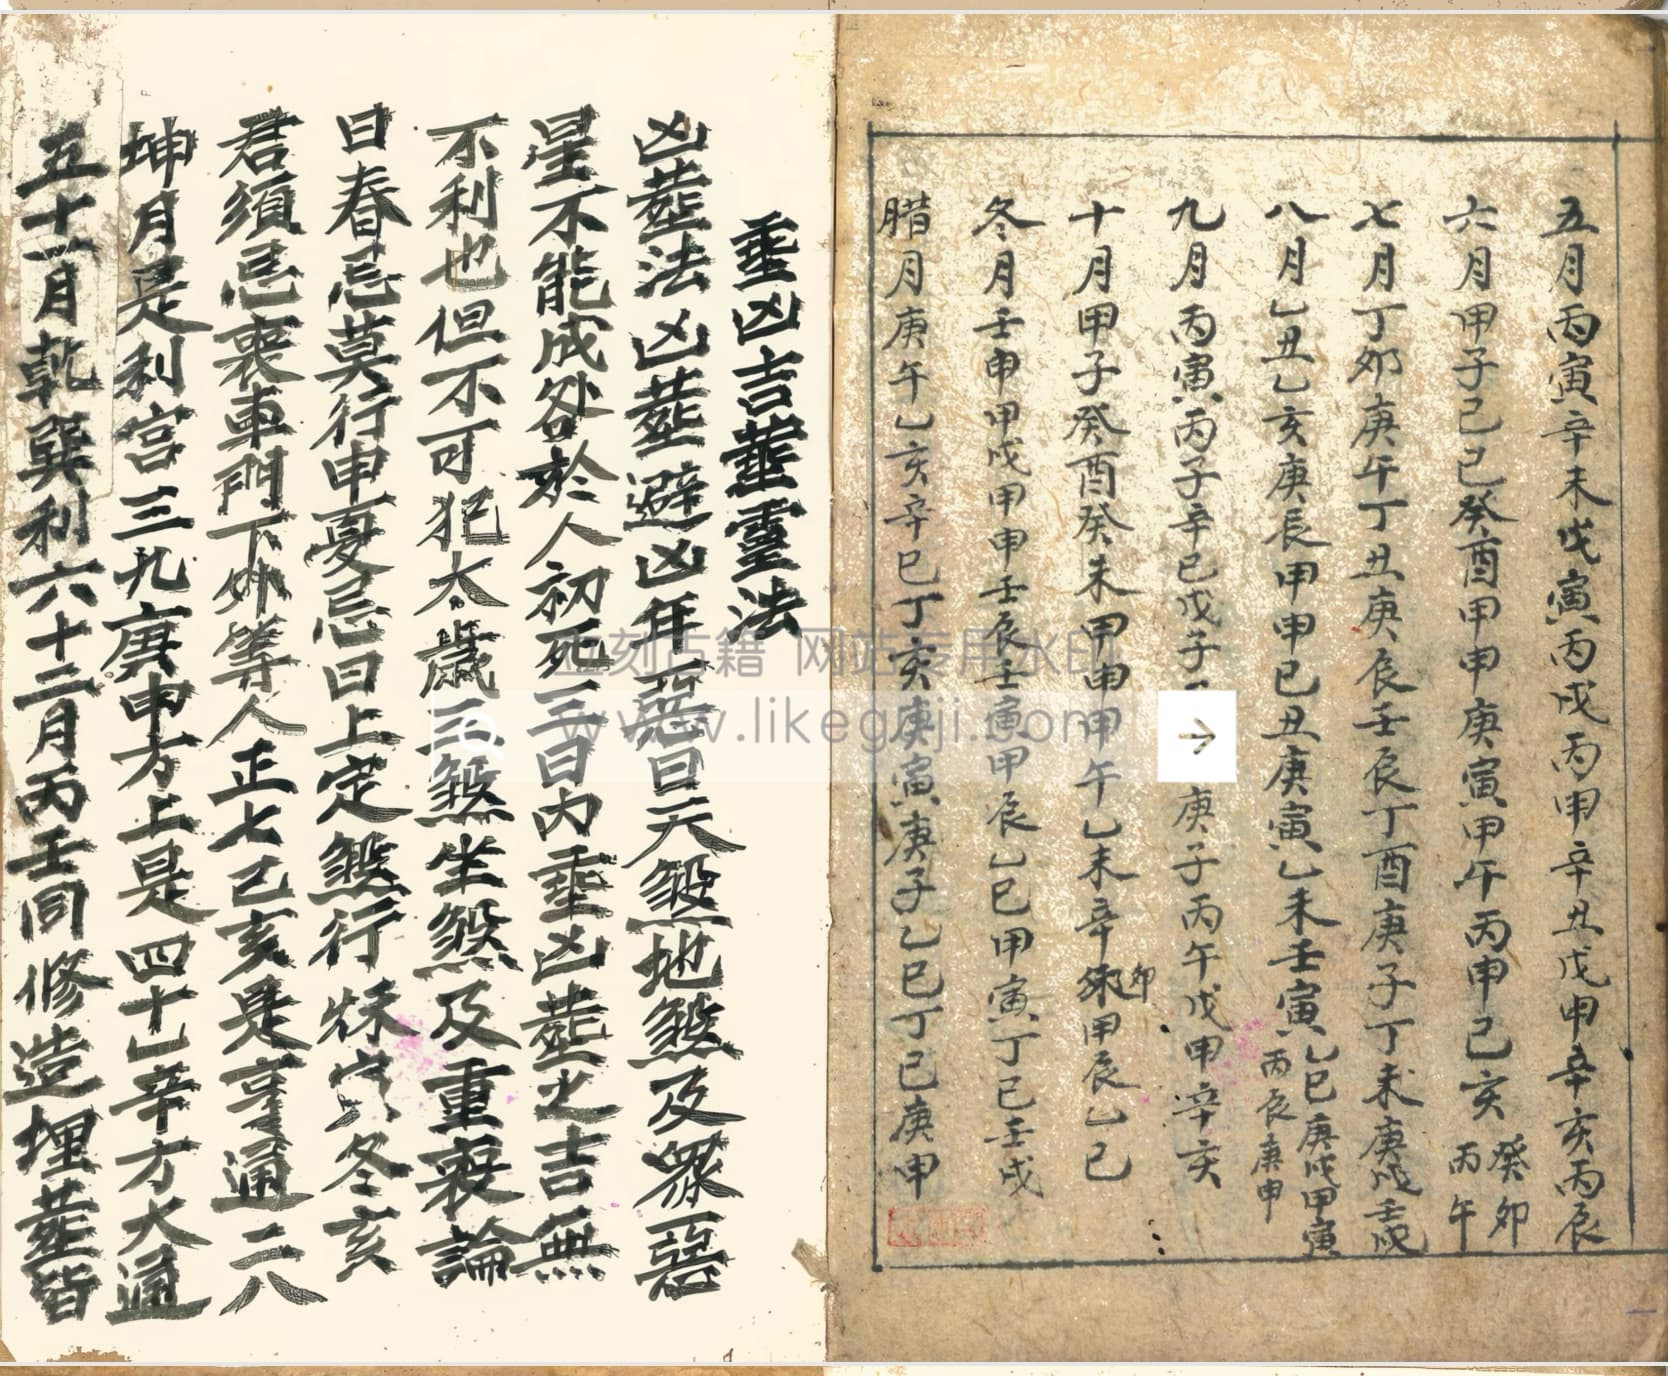 五月丙寅辛未戊寅丙戌丙申辛丑戊申辛亥丙辰
六月甲子己巳癸酉甲申庚寅甲午丙申己亥癸卯丙午
七月丁卯庚午丁丑庚辰壬辰丁酉庚子丁未庚戌壬戌
八月乙丑乙亥庚辰甲申己丑庚寅乙未壬寅乙巳庚戌甲寅丙辰庚申
九月丙寅丙子辛巳戊子庚子丙午戊申辛亥
十月甲子癸酉癸未甲申甲午乙未辛卯甲辰乙巳
冬月壬申甲戌甲申壬辰壬寅甲辰乙巳甲寅丁巳壬戌
腊月庚午乙亥辛巳丁亥庚寅庚子乙巳丁巳庚申
埀凶吉塟靈法
凶塟法凶塟避凶年惡日天煞地煞及眾惡
星不能成咎於人初死三日内埀凶塟之吉無
不利也但不可犯太歲三煞坐煞及重喪論
日春忌莫行申夏忌日上定煞行秌冬亥
君須忌喪車門下外等人正七己亥是亨通二八
坤月是利宫三九庚申方上是四十乙辛方大通
五十一月乾巽利六十二月丙壬同修造埋塟皆
显刻古籍 网站专用水印
www.likeguji.com